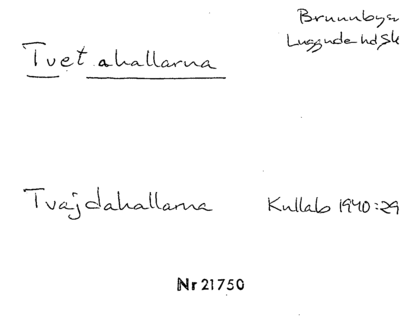 Brunnbys
Luggude hd Sk
Tvetahallarna
Tvajdahallarna Kullab 1940:29
Nr 21750